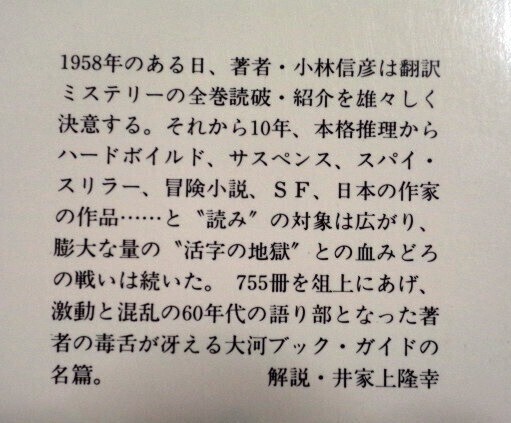 1958年のある日、著者・小林信彦は翻訳
ミステリーの全巻読破・紹介を雄々しく
決意する。それから10年、本格推理から
ハードボイルド、サスペンス、スパイ・
スリラー、冒険小説、ＳＦ、日本の作家
の作品……と〝読み〟の対象は広がり、
膨大な量の〝活字の地獄〟との血みどろ
の戦いは続いた。755冊を俎上にあげ、
激動と混乱の60年代の語り部となった著
者の毒舌が冴える大河ブック・ガイドの
名篇。 解説・井家上隆幸